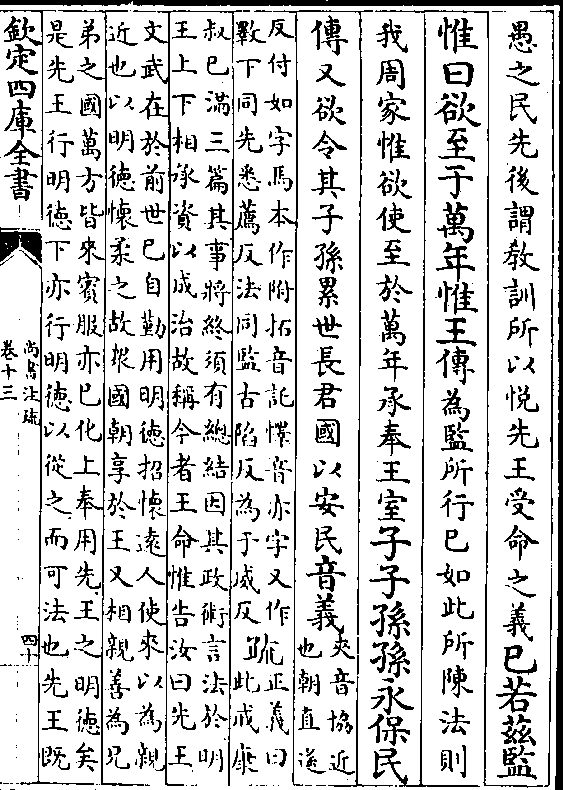 愚之民先後謂教訓所以悦先王受命之義已若茲監
惟曰欲至于萬年惟王傳為監所行已如此所陳法則
我周家惟欲使至於萬年承奉王室子子孫孫永保民
傳又欲令其子孫累世長君國以安民音義夾音協近
也朝直遥
反付如字馬本作附拓音託懌音亦字又作
斁下同先悉薦反法同監古陷反為于威反疏正義曰
此戒康
叔已滿三篇其事將終須有總結因其政術言法於明
王上下相承資以成治故稱今者王命惟告汝曰先王
文武在於前世已自勤用明徳招懷逺人使來以為親
近也以明徳懷柔之故衆國朝享於王又相親善為兄
弟之國萬方皆來賓服亦已化上奉用先王之明徳矣
是先王行明徳下亦行明徳以從之而可法也先王既
欽定四庫全書
尚書注疏
卷十三
四十